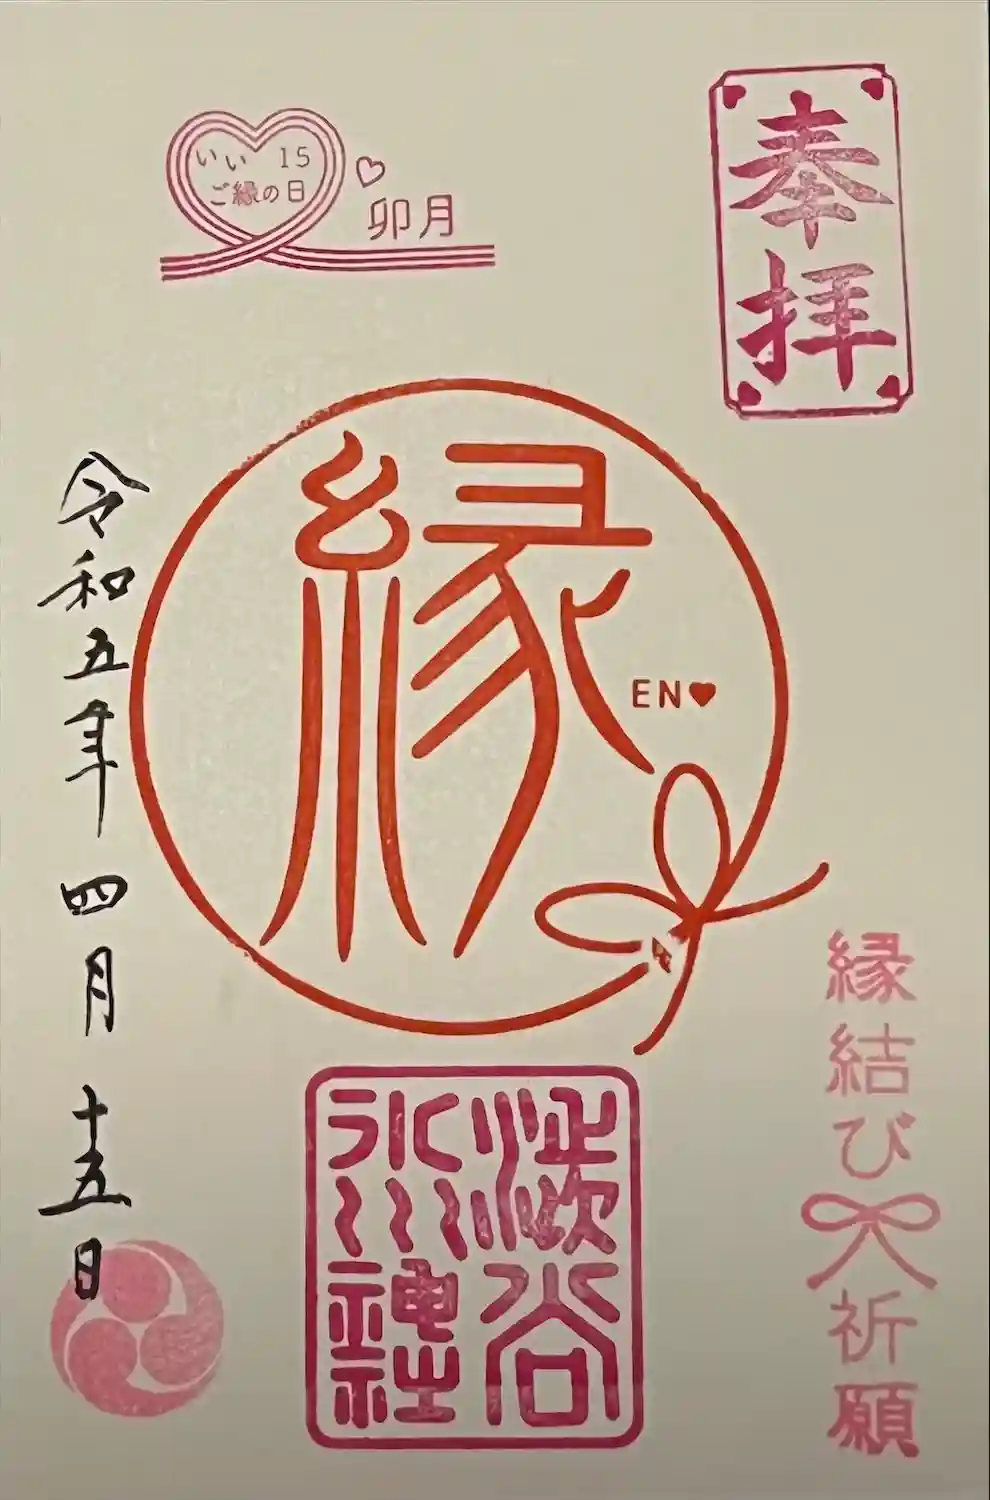 奉拝
いい 15
ご縁の日
卯月
縁
EN
縁結び
祈願
渋谷
氷川
神社
令和五年 四月 十五日